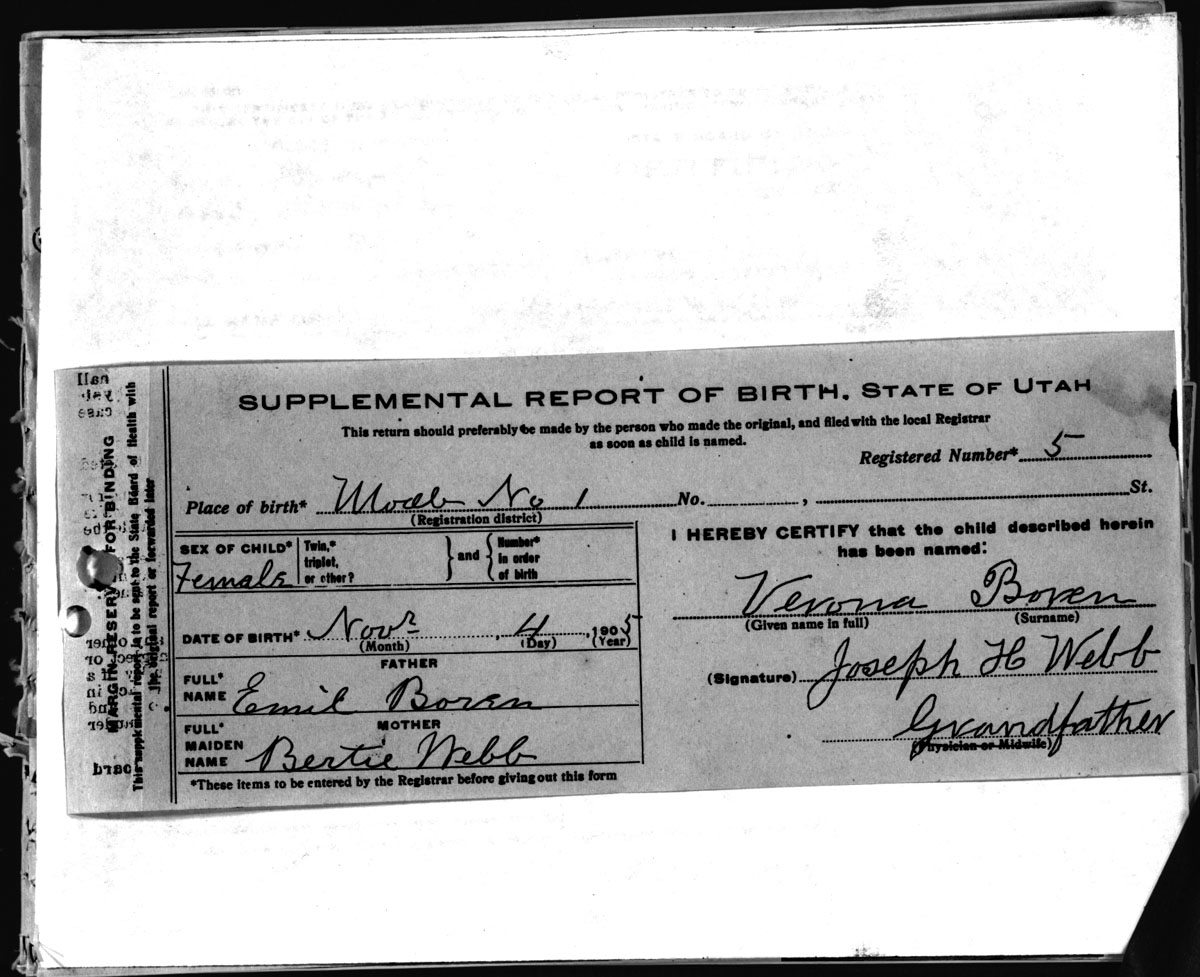 SUPPLEMENTAL REPORT OF BIRTH. STATE OF UTAH
This return should preferably be made by the person who made the original, and filed with the local Registrar
as soon as child is named.
Registered Number* 5
Place of birth* Moab No 1 No. , St.
(Registration district)
SEX OF CHILD* Female
Twin,* triplet, or other? } and { Number* in order of birth
DATE OF BIRTH* Novr 4, 1905
(Month) (Day) (Year)
FATHER
FULL* NAME Emil Boren
MOTHER
FULL* MAIDEN NAME Bertie Webb
*These items to be entered by the Registrar before giving out this form
I HEREBY CERTIFY that the child described herein
has been named:
Verona Boren
(Given name in full) (Surname)
(Signature) Joseph H Webb
Grandfather
(Physician or Midwife)
MARGIN RESERV FOR BINDING
This supplemental report is to be sent to the State Board of Health with
the original report or forwarded later